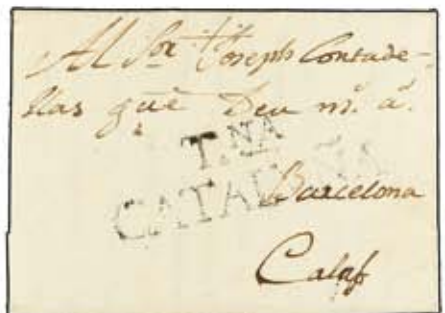 Al Sor Joseph Contade-
llas que Deu ms. as.
T.NA
CATALUÑA
Barcelona
Calaf